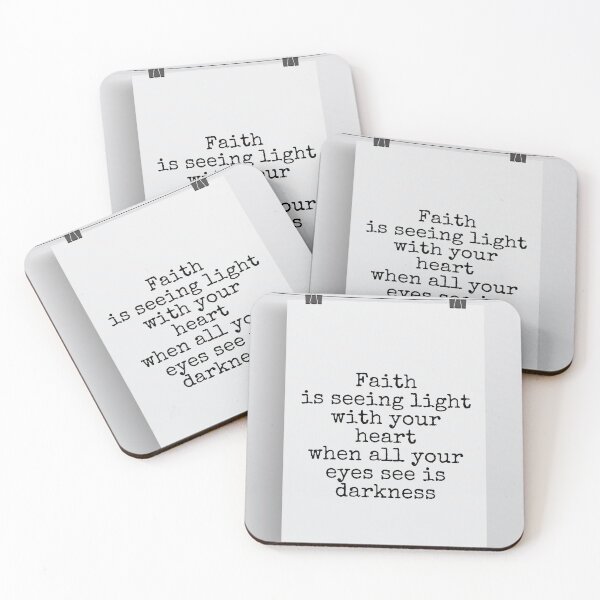 Faith
is seeing light
Faith
is seeing light
with your
heart
when all your
eyes see is
Faith
is seeing light
with your
heart
when all yo
eyes see
darkne
Faith
is seeing light
with your
heart
when all your
eyes see is
darkness